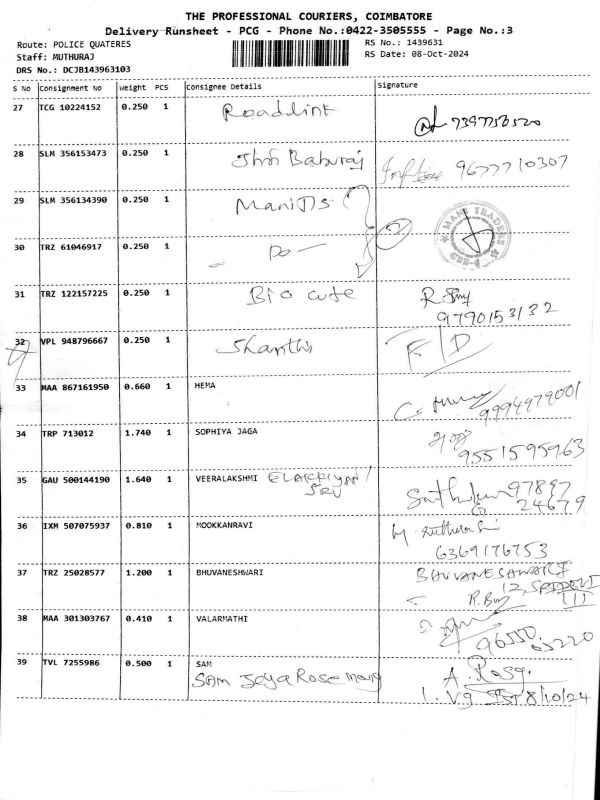 THE PROFESSIONAL COURIERS, COIMBATORE
Delivery Runsheet - PCG - Phone No.:0422-3505555 - Page No.:3
Route: POLICE QUATERES
RS No.: 1439631
Staff: MUTHURAJ
RS Date: 08-Oct-2024
DRS No.: DCJB143963103
S No Consignment No Weight PCS Consignee Details Signature
27 TCG 10224152 0.250 1 Roadlink 7397753520
28 SLM 356153473 0.250 1 Jhon Baburaj 9677710307
29 SLM 356134390 0.250 1
MANI TRADERS
CBE-4
30 TRZ 61046917 0.250 1 - Do - 2
31 TRZ 122157225 0.250 1 Bio cute R
9790153132
32 VPL 948796667 0.250 1 Shanthi F/D
33 MAA 867161950 0.660 1 HEMA
9994979001
34 TRP 713012 1.740 1 SOPHIYA JAGA
9551595963
35 GAU 500144190 1.640 1 VEERALAKSHMI 97897
24679
36 IXM 507075937 0.810 1 MOOKKANRAVI
6369176753
37 TRZ 25028577 1.200 1 BHUVANESHWARI BHUVANESHWARI
12,
38 MAA 301303767 0.410 1 VALARMATHI
96550
03220
39 TVL 7255986 0.500 1 SAM A. Rosy
SAM Jeya Rose mary
8/10/24